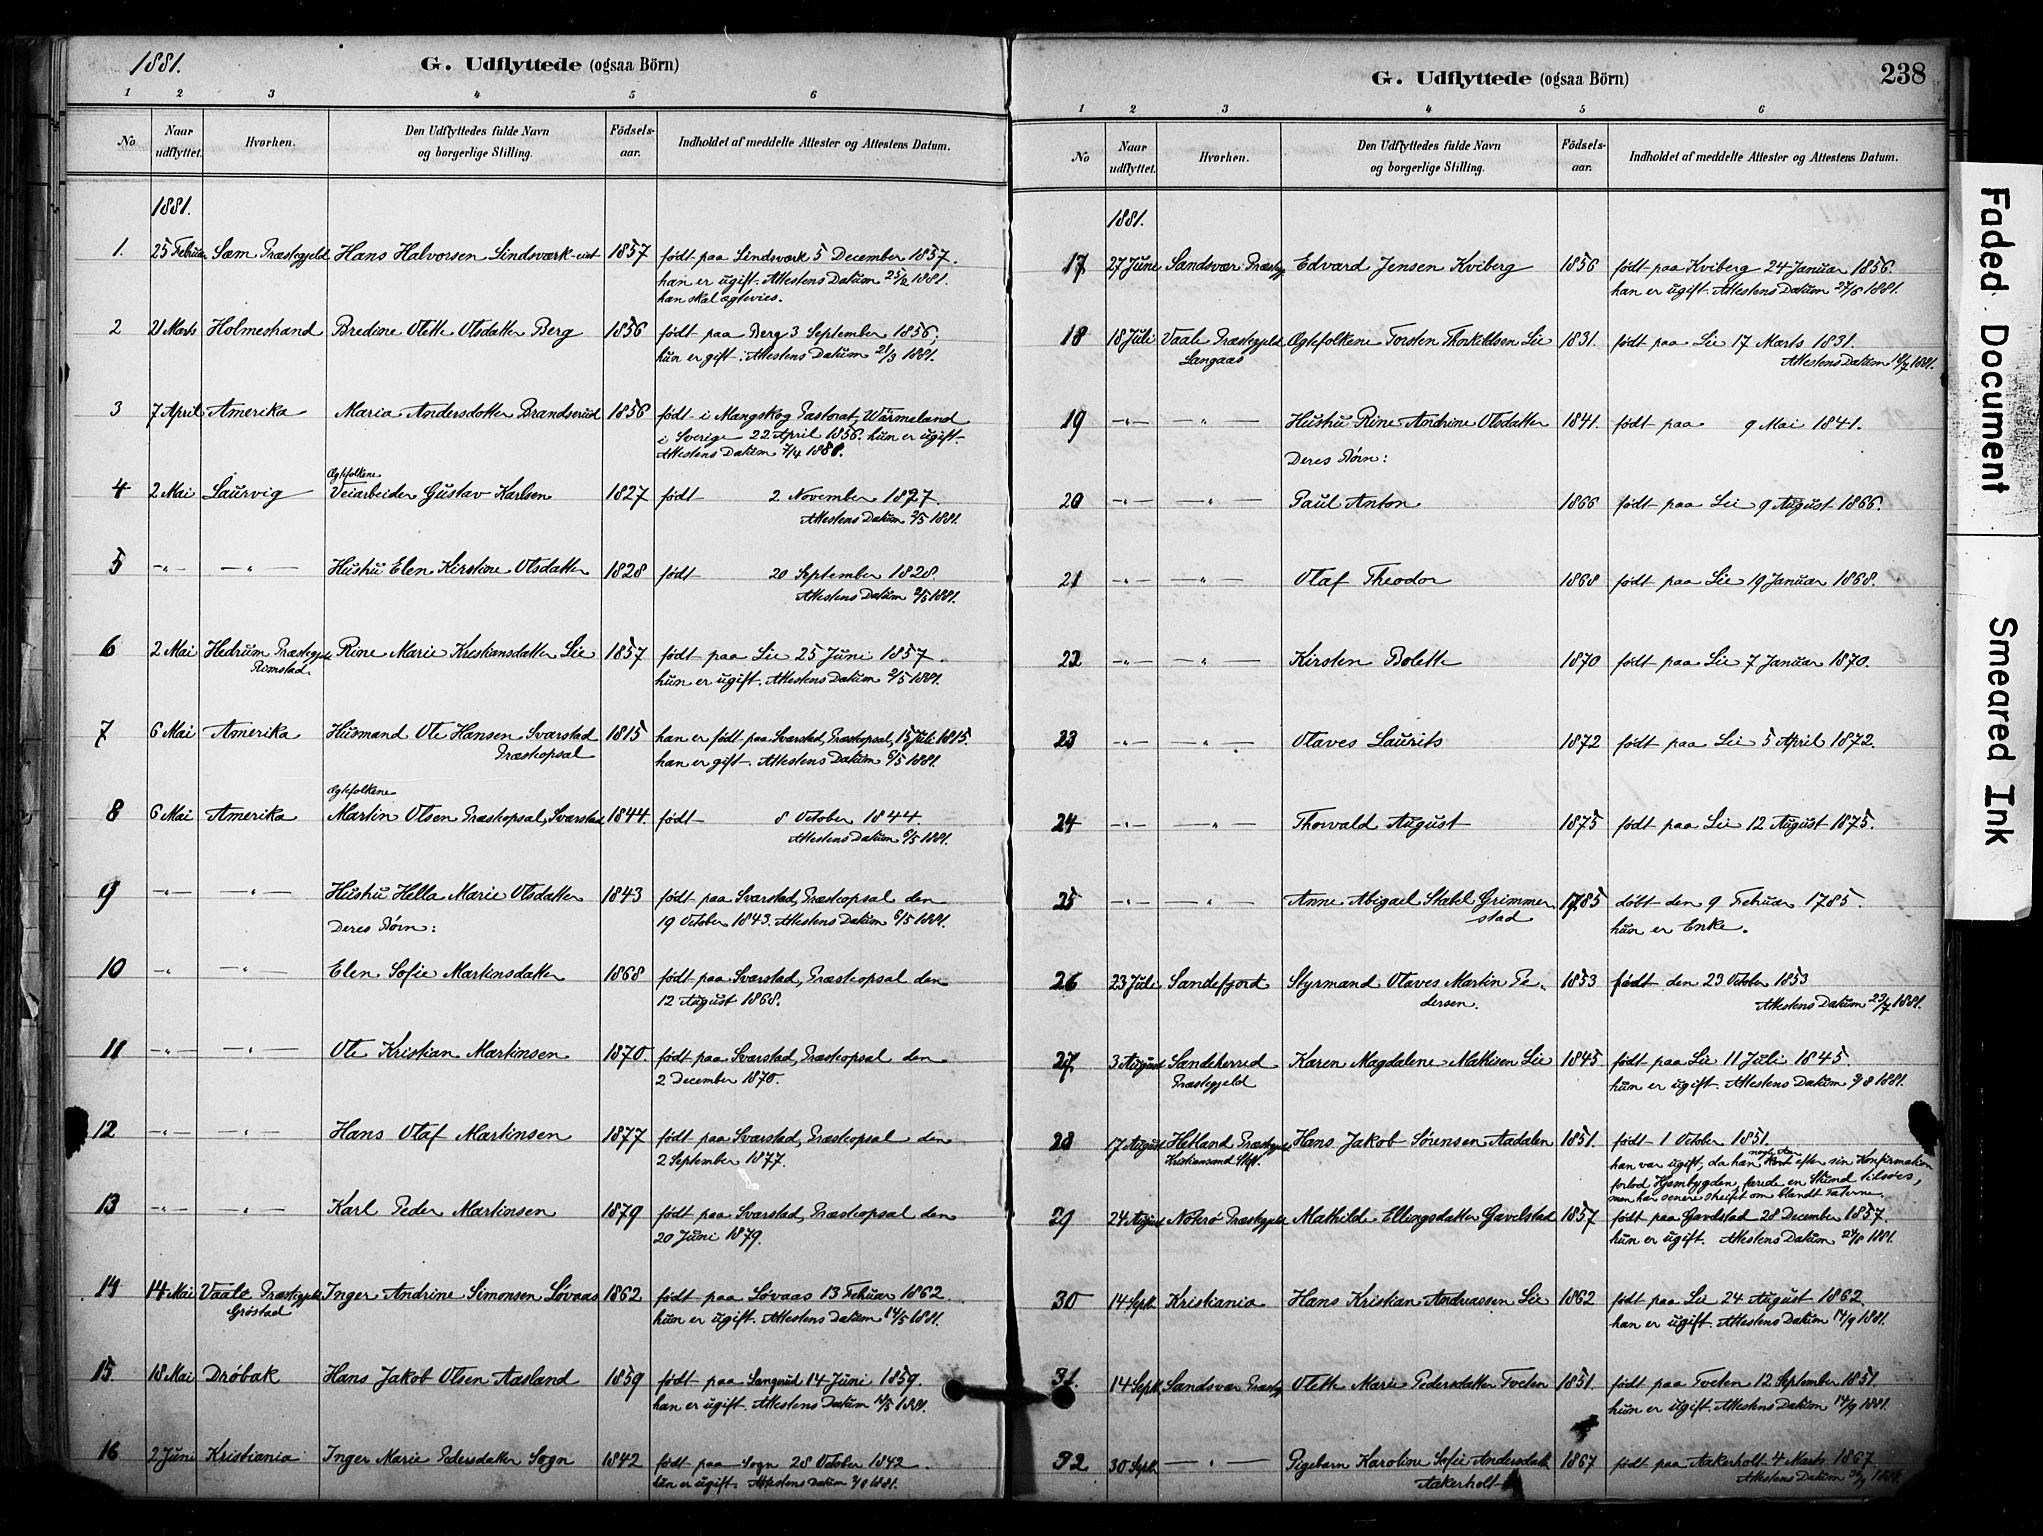 1881.
G. Udflyttede (ogsaa Börn)
1 2 3 4 5 6
No Naar udflyttet. Hvorhen. Den Udflyttedes fulde Navn og borgerlige Stilling. Födsels-aar. Indholdet af meddelte Attester og Attestens Datum.
1881.
1. 25 Februar Sæm Præstegjeld Hans Halvorsen Lindsværk-eiet 1857 født paa Lindsværk 5 December 1857.
han er ugift. Attestens Datum 25/2 1881.
han skal ægtevies.
2 21 Marts Holmestrand Bredine Olette Olsdatter Berg 1856 født paa Berg 3 September 1856;
hun er gift. Attestens Datum 21/3 1881.
3 7 April Amerika Maria Andersdotter Brandserud 1856 født i Mangskog Pastorat, Wärmeland
i Sverige 22 April 1856. hun er ugift
Attestens Datum 7/4 1881.
Ægtefolkene
4 2 Mai Laurvig Veiarbeider Gustav Karlsen 1827 født 2 November 1827.
Attestens Datum 2/5 1881.
5 -„- -„- Hustru Elen Kirstine Olsdatter 1828 født 20 September 1828.
Attestens Datum 2/5 1881.
6 2 Mai Hedrum Præstegjeld Rine Marie Kristiansdatter Lie 1857 født paa Lie 25 Juni 1857.
Rimstad. hun er ugift. Attestens Datum 2/5 1881.
7 6 Mai Amerika Husmand Ole Hansen Svarstad 1815 han er født paa Svarstad, Præsteopsal, 15 Juli 1815.
Præsteopsal han er gift. Attestens Datum 6/5 1881.
Ægtefolkene
8 6 Mai Amerika Martin Olsen Præsteopsal, Svarstad 1844. født 8 October 1844.
Attestens Datum 6/5 1881.
9 -„- -„- Hustru Hella Marie Olsdatter 1843 født paa Svarstad, Præsteopsal den
Deres Børn: 19 October 1843. Attestens Datum 6/5 1881.
10 -„- -„- Elen Sofie Martinsdatter 1868 født paa Svarstad, Præsteopsal den
12 August 1868.
11 -„- -„- Ole Kristian Martinsen 1870. født paa Svarstad, Præsteopsal den
2 December 1870.
12 -„- -„- Hans Olaf Martinsen 1877 født paa Svarstad, Præsteopsal den
2 September 1877.
13 -„- -„- Karl Peder Martinsen 1879 født paa Svarstad, Præsteopsal den
20 Juni 1879.
14 14 Mai Vaale Præstegjeld Inger Andrine Simonsen Løvaas 1862 født paa Løvaas 13 Februar 1862.
Grøstad hun er ugift. Attestens Datum 14/5 1881.
15. 18 Mai Drøbak Hans Jakob Olsen Aasland 1859 født paa Langerud 14 Juni 1859.
han er ugift. Attestens Datum 18/5 1881.
16 2 Juni Kristiania Inger Marie Pedersdatter Sogn 1842 født paa Sogn 28 October 1842.
hun er ugift. Attestens Datum 1881.
G. Udflyttede (ogsaa Börn) 238
1 2 3 4 5 6
No Naar udflyttet. Hvorhen. Den Udflyttedes fulde Navn og borgerlige Stilling. Födsels-aar. Indholdet af meddelte Attester og Attestens Datum.
1881.
17. 27 June Sandsvær Præstgj Edvard Jensen Kviberg 1856 født paa Kviberg 24 Januar 1856.
han er ugift. Attestens Datum 27/6 1881.
18 18 Juli Vaale Præstegjeld Ægtefolkene Torsten Thorkildsen Lie 1831. født paa Lie 17 Marts 1831.
Langaas Attestens Datum 18/7 1881.
19 -„- -„- Hustru Rine Andrine Olsdatter 1841. født paa 9 Mai 1841.
Deres Børn:
20 -„- -„- Paul Anton 1866 født paa Lie 9 August 1866.
21 -„- -„- Olaf Theodor 1868 født paa Lie 19 Januar 1868.
22 -„- -„- Kirsten Bolette 1870 født paa Lie 7 Januar 1870.
23 -„- -„- Olaves Laurits 1872 født paa Lie 5 April 1872.
24 -„- -„- Thorvald August 1875 født paa Lie 12 August 1875.
25 -„- -„- Anne Abigael Stabel Grimmer 1785 døbt den 9 Februar 1785.
stad hun er Enke.
26 23 Juli Sandefjord Styrmand Olaves Martin Pe- 1853 født den 23 October 1853
dersen. Attestens Datum 23/7 1881.
27. 3 August Sandeherred Karen Magdalene Mathisen Lie 1845 født paa Lie 11 Juli 1845.
Præstegjeld hun er ugift. Attestens Datum 3/8 1881.
28 17 August Hetland Præstegjeld Hans Jakob Sørensen Aadalen 1851. født 1 October 1851.
Kristiansand Stift. han var ugift, da han noget efter sin Konfirmation
forlod Hjembygden, farede en Stund tilsøes,
men har senere streifet om blandt Taterne.
29 24 August Nøterø Præstegjeld Mathilde Ellingsdatter Gavelstad 1857 født paa Gavelstad 28 December 1857.
hun er ugift. Attestens Datum 24/8 1881.
30 14 Sept. Kristiania Hans Kristian Andreassen Lie 1862 født paa Lie 24 August 1862.
han er ugift. Attestens Datum 14/9 1881.
31. 14 Sept. Sandsvær Præstgj Olette Marie Pedersdatter Tveten 1851. født paa Tveten 12 September 1851.
hun er ugift. Attestens Datum 14/9 1881.
32 30 Sept. -„- Pigebarn Karoline Sofie Andersdatter 1867 født paa Aakerholt 4 Marts 1867
Aakerholt Attestens Datum 30/9 1881.
Faded Document
Smeared Ink